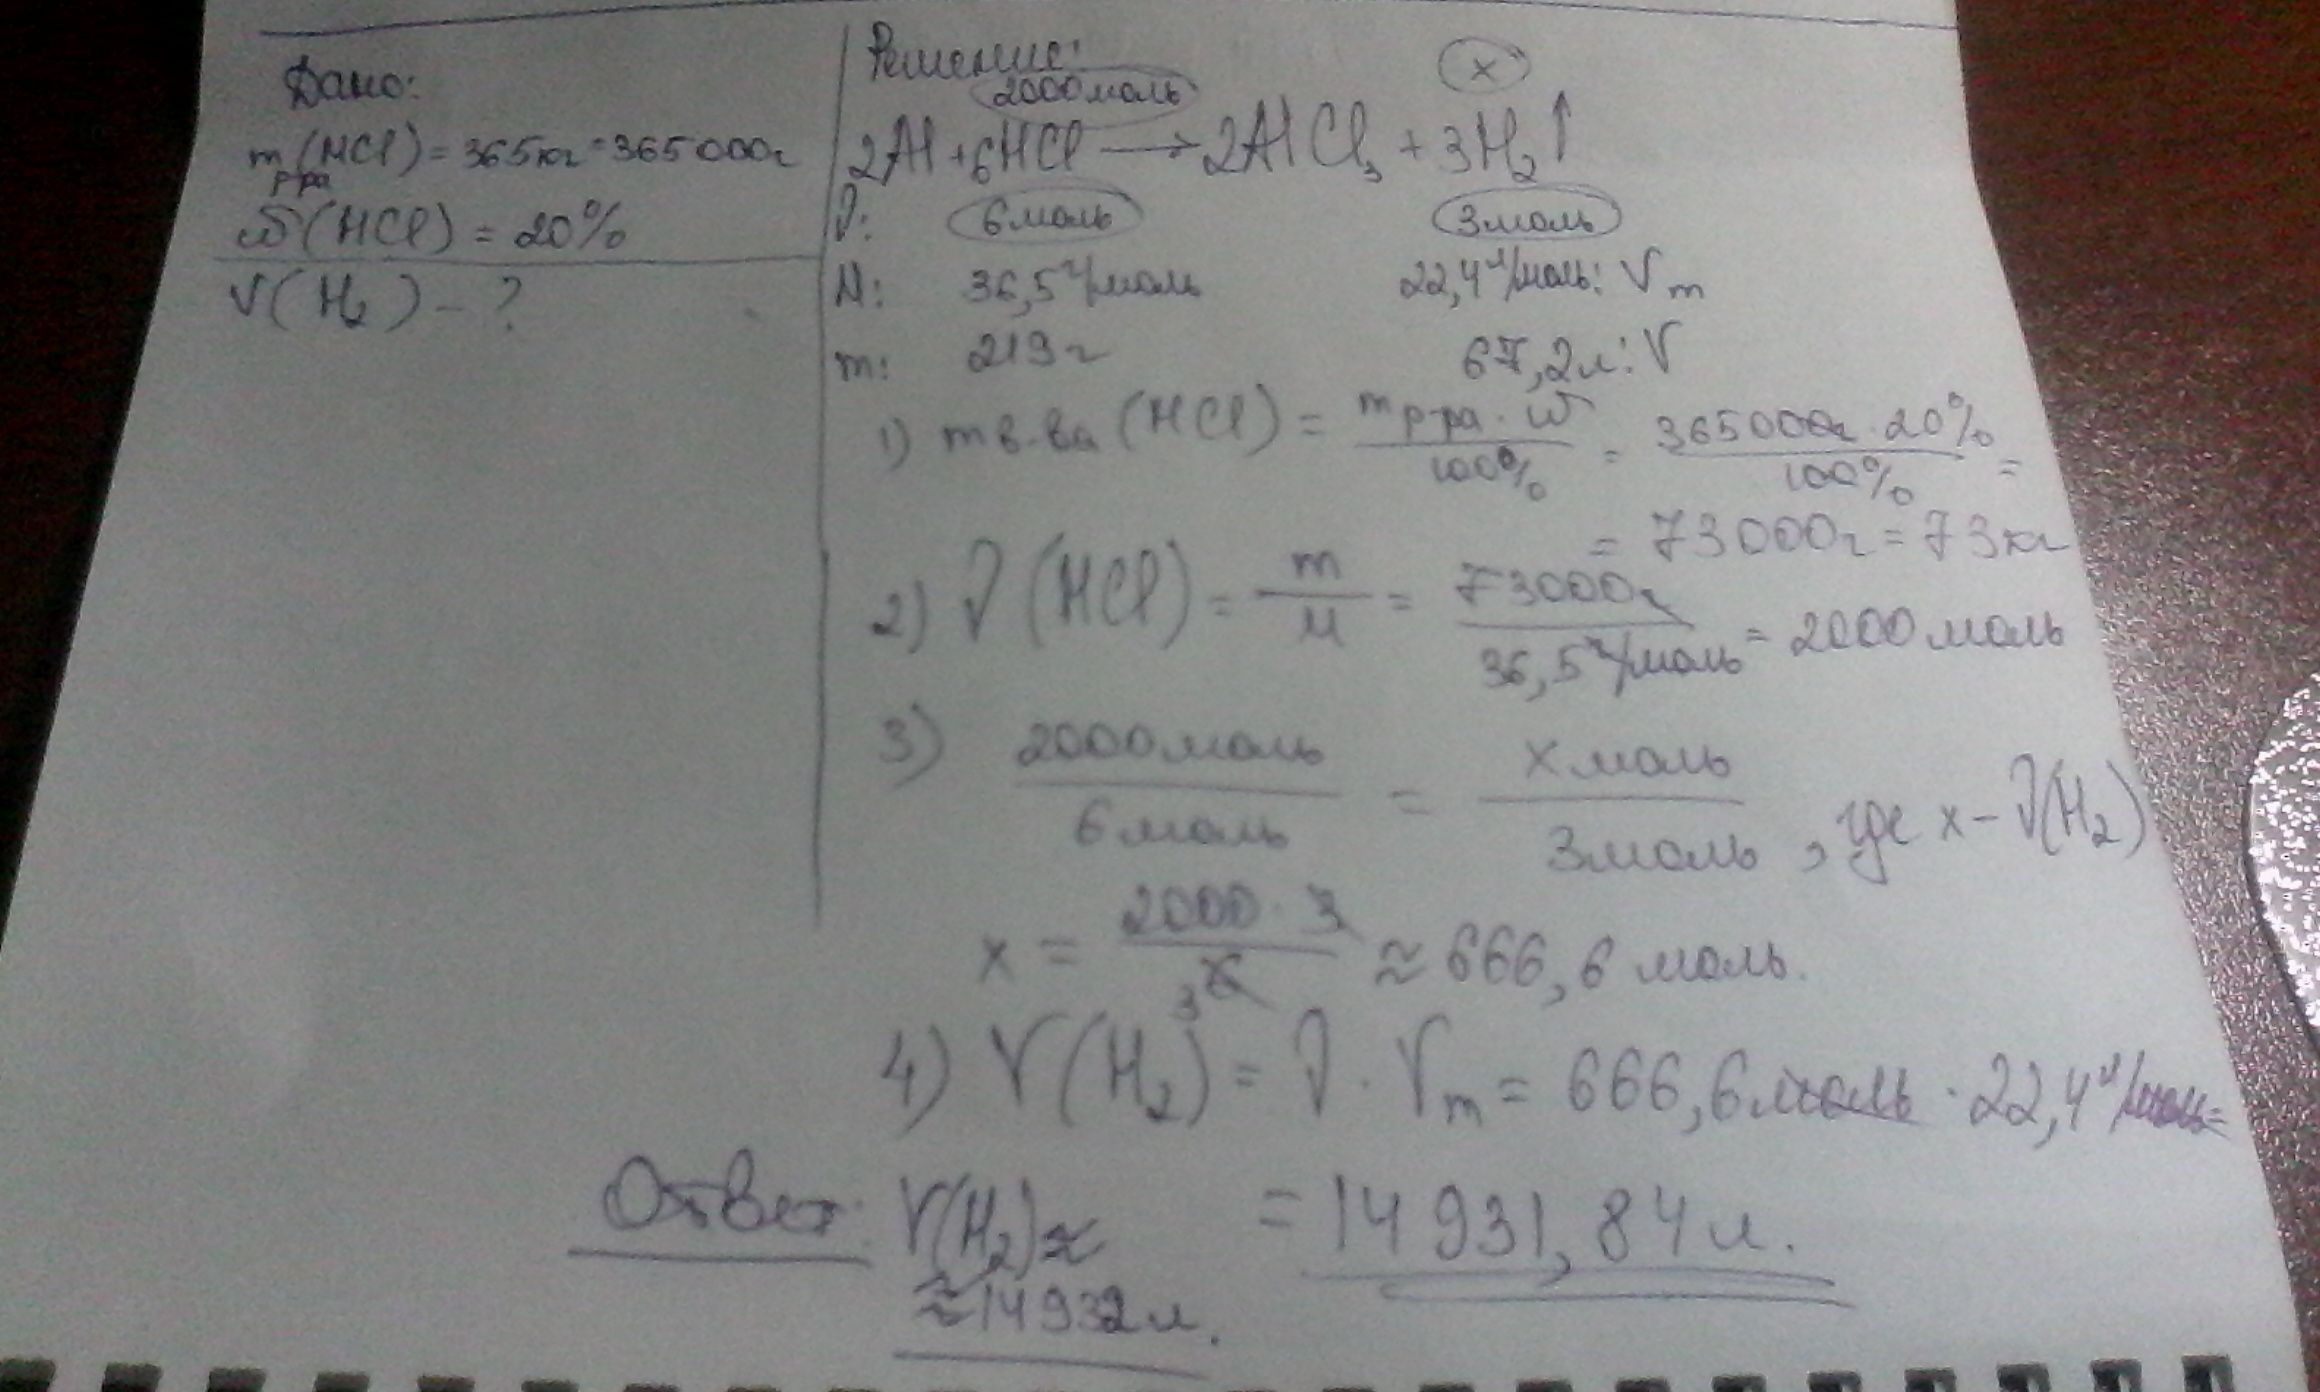 Дано:
m р-ра (HCl) = 365кг = 365000г
ω(HCl) = 20%
V(H₂) - ?
Решение:
2000моль x
2Al + 6HCl → 2AlCl₃ + 3H₂↑
ν: 6моль 3моль
M: 36,5г/моль 22,4л/моль: Vm
m: 219г 67,2л: V
1) m в-ва (HCl) = mр-ра · ω / 100% = 365000г · 20% / 100% =
= 73000г = 73кг
2) ν(HCl) = m / M = 73000г / 36,5г/моль = 2000моль
3) 2000моль / 6моль = x моль / 3моль, где x - ν(H₂)
x = 2000 · 3 / 6 3 ≈ 666,6 моль.
4) V(H₂) = ν · Vm = 666,6моль · 22,4л/моль =
= 14931,84л.
Ответ: V(H₂) ≈
≈ 14932л.